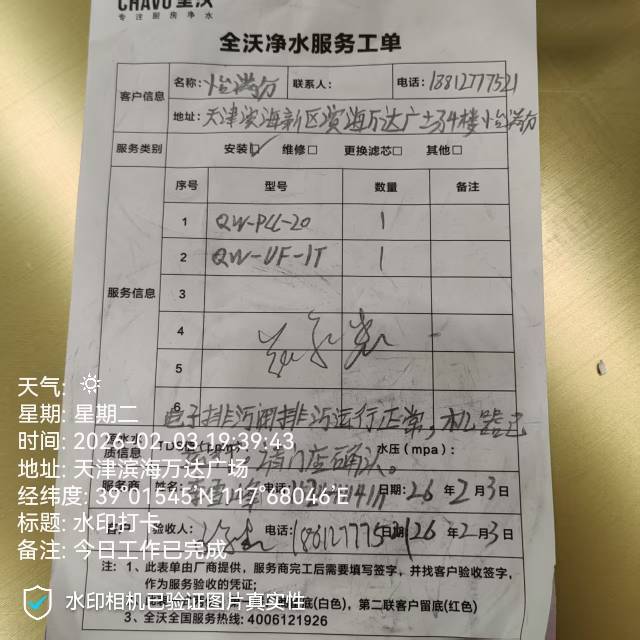 CHAVO 全沃
专注厨房净水
全沃净水服务工单
客户信息 名称: 怡满分 联系人: 电话: 18812777521
地址: 天津滨海新区滨海万达广土3F4楼怡满分
服务类别 安装☑ 维修□ 更换滤芯□ 其他□
服务信息
序号 型号 数量 备注
1 QW-PCC-20 1
2 QW-UF-1T 1
3
4
5
6
电子排污阀排污运行正常,机器已
请门店确认。
质信息 水压(mpa):
服务商 姓名: 电话: 日期: 26年2月3日
客户 验收人: 电话: 日期: 26年2月3日
注: 1、此表单由厂商提供,服务商完工后需要填写签字,并找客户验收签字,
作为服务验收的凭证;
底(白色),第二联客户留底(红色)
3、全沃全国服务热线: 4006121926
天气:
星期: 星期二
时间: 2026-02-03 19:39:43
地址: 天津滨海万达广场
经纬度: 39°01545'N 117°68046'E
标题: 水印打卡
备注: 今日工作已完成
水印相机已验证图片真实性